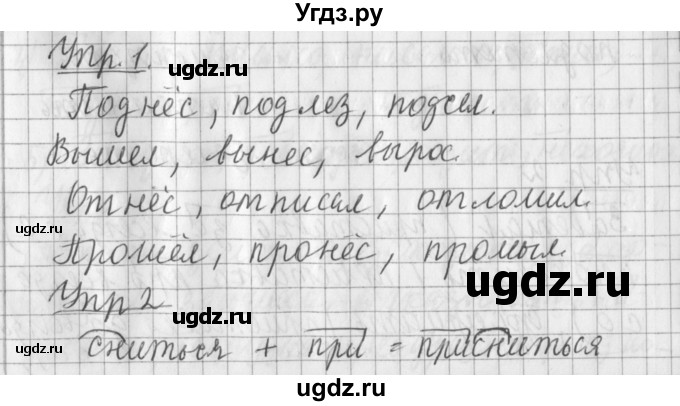 Угдз.ру
Упр. 1.
ugdz.ru
Поднёс, подлез, подсел.
ugdz.ru
Вышел, вынес, вырос.
ugdz.ru
Отнёс, отписал, отломил.
Прошёл, пронёс, промыл.
ugdz.ru
Упр 2
ugdz.ru
сниться + при = присниться
ugdz.ru